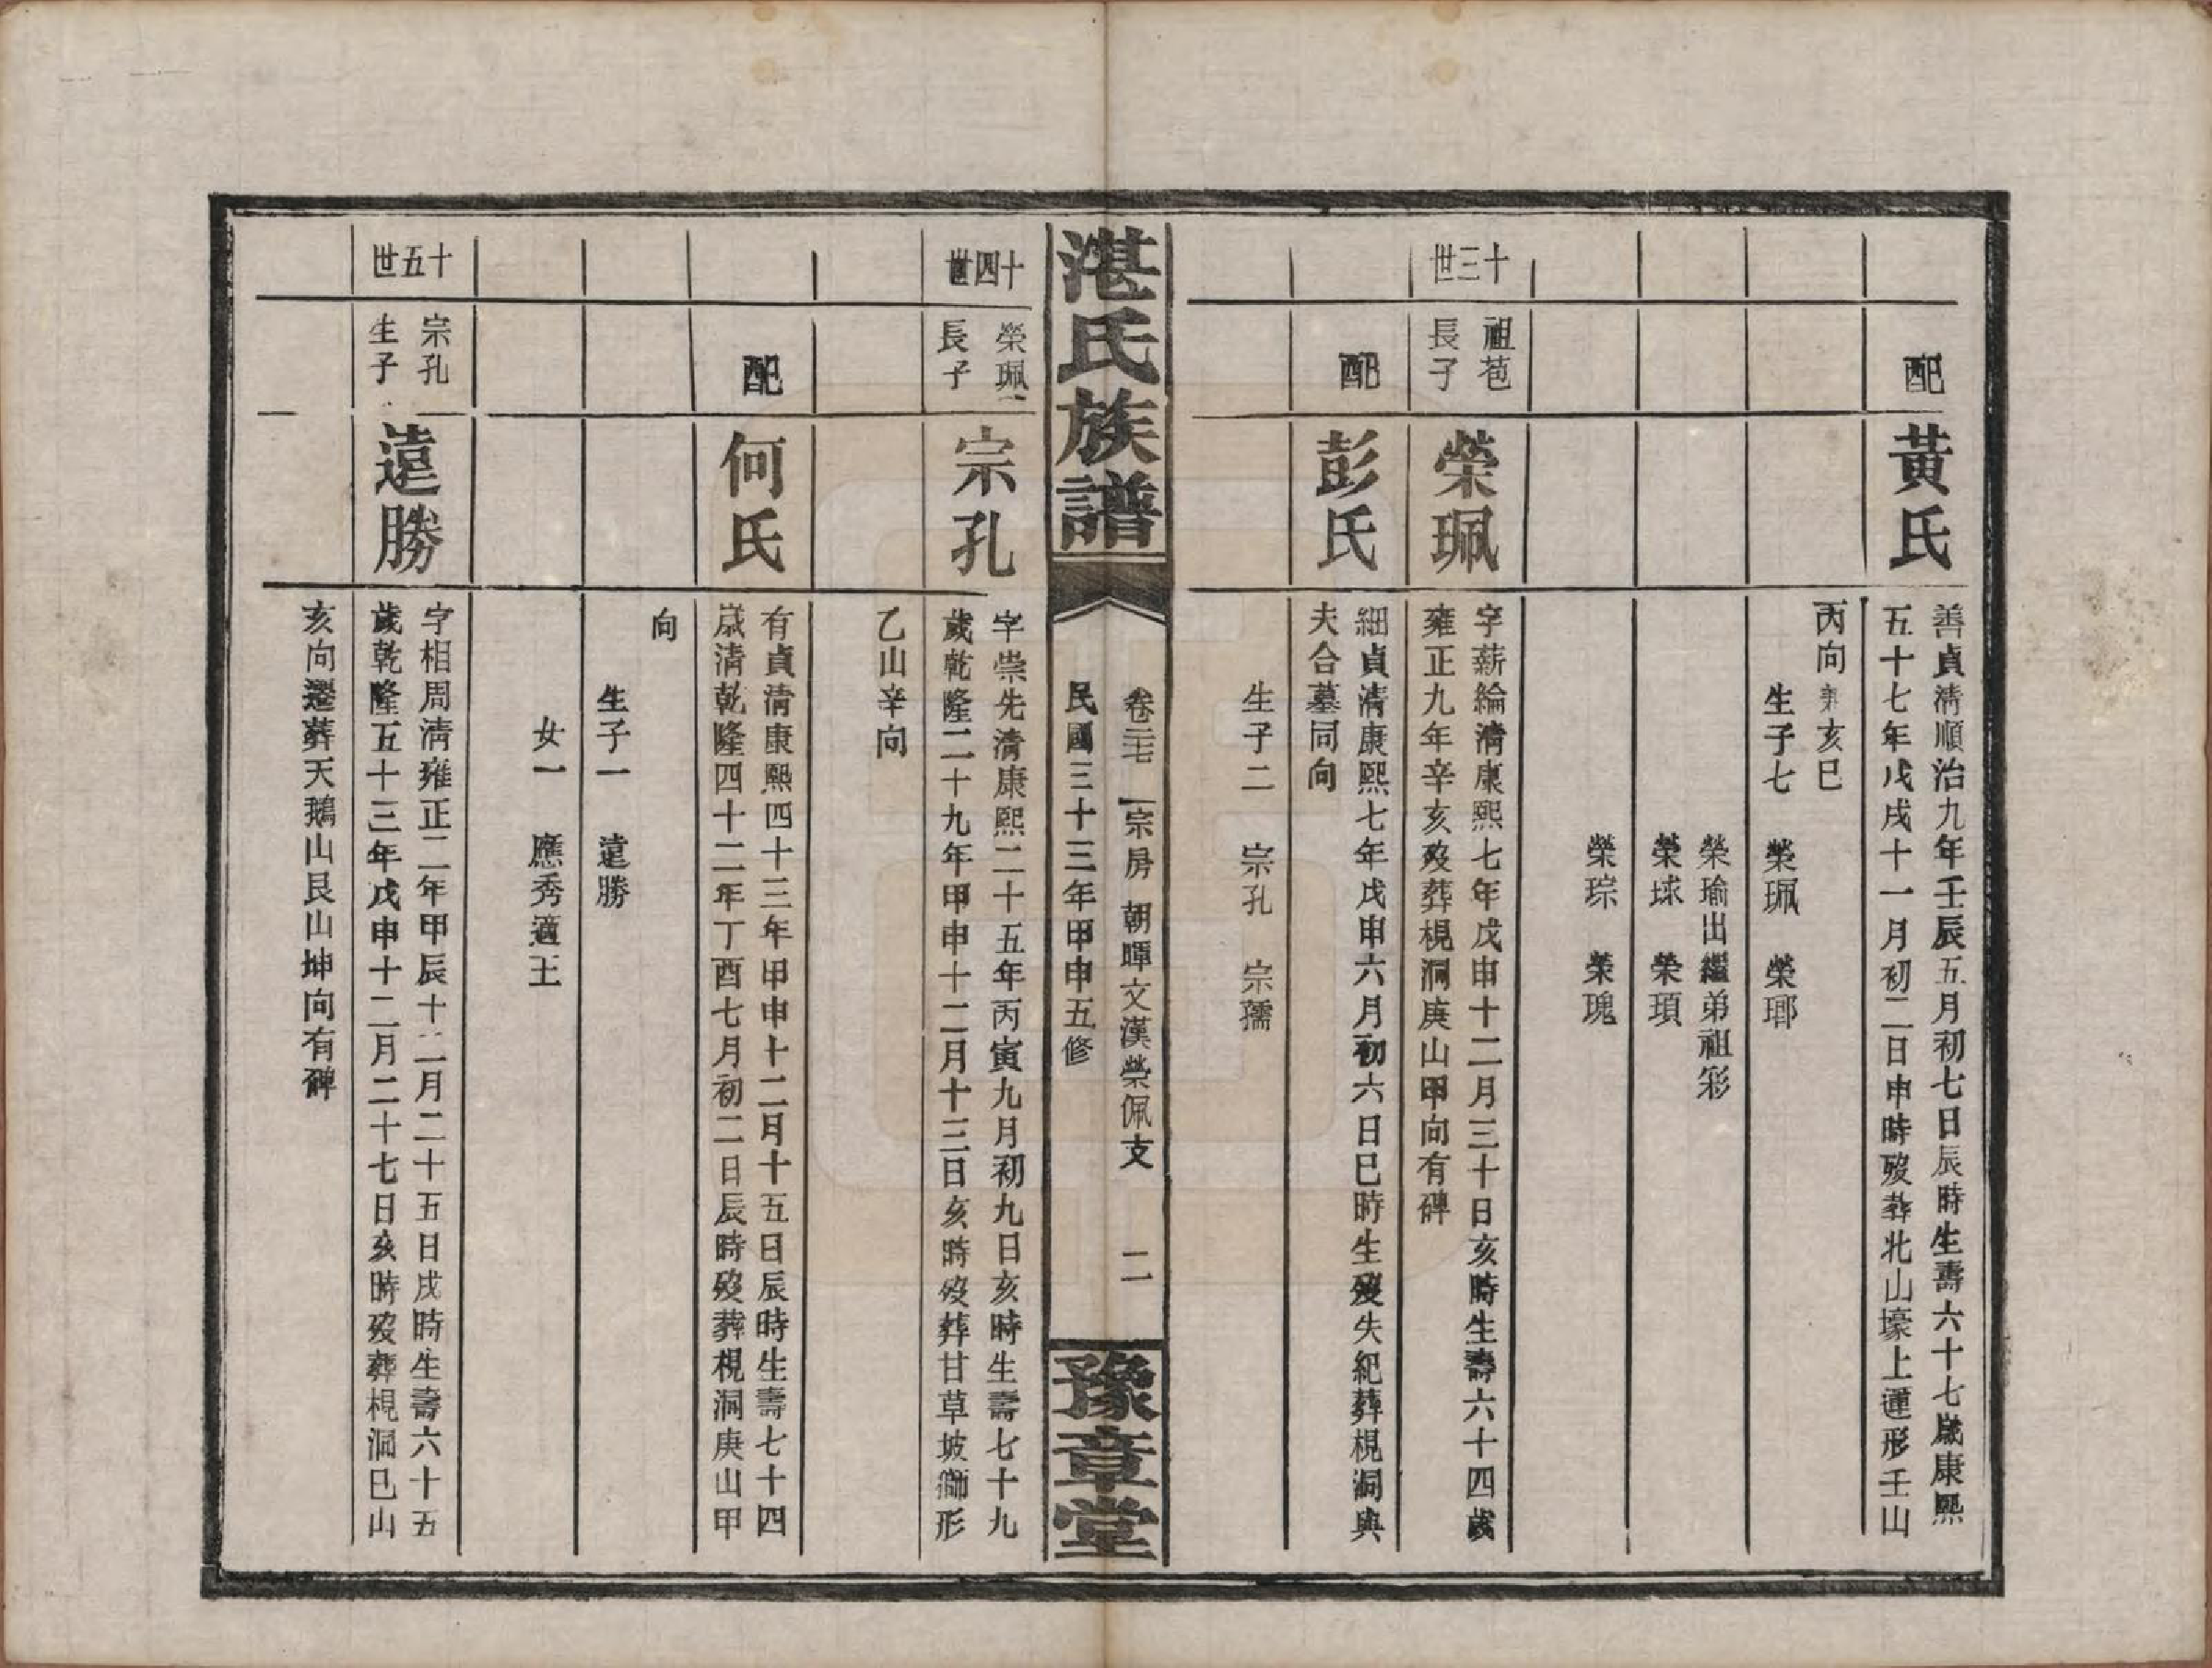 配
黃氏
善貞清順治九年壬辰五月初七日辰時生壽六十七歲康熙
五十七年戊戌十一月初二日申時歿葬北山壕上連形壬山
丙向兼亥巳
生子七　榮珮　榮瑯
榮瑜出繼弟祖彩
榮球　榮頊
榮琮　榮瑰
十三世
祖苞
長子
榮珮
字薪綸清康熙七年戊申十二月三十日亥時生壽六十四歲
雍正九年辛亥歿葬梘洞庚山甲向有碑
配
彭氏
細貞清康熙七年戊申六月初六日巳時生歿失紀葬梘洞與
夫合墓同向
生子二　宗孔　宗孺
湛氏族譜
卷三七　一宗房　朝暉文漢榮佩支　二
民國三十三年甲申五修
豫章堂
十四世
榮珮
長子
宗孔
字崇先清康熙二十五年丙寅九月初九日亥時生壽七十九
歲乾隆二十九年甲申十二月十三日亥時歿葬甘草坡獅形
乙山辛向
配
何氏
有貞清康熙四十三年甲申十二月十五日辰時生壽七十四
歲清乾隆四十二年丁酉七月初二日辰時歿葬梘洞庚山甲
向
生子一　遠勝
女一　應秀適王
十五世
宗孔
生子
遠勝
字相周清雍正二年甲辰十二月二十五日戌時生壽六十五
歲乾隆五十三年戊申十二月二十七日亥時歿葬梘洞巳山
亥向遷葬天鵝山艮山坤向有碑